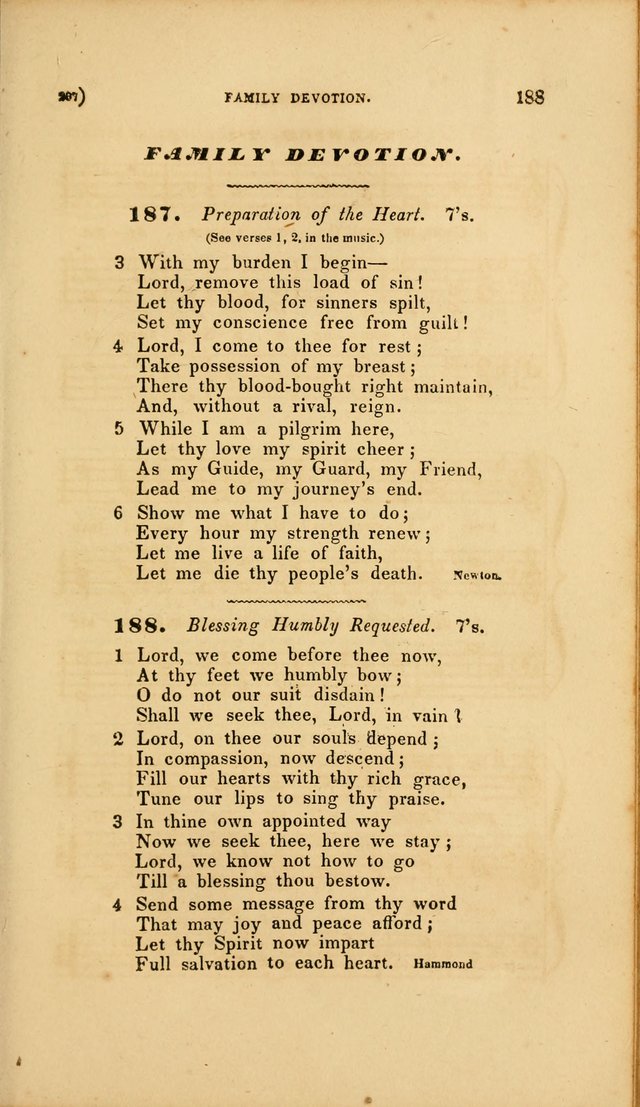 207) FAMILY DEVOTION. 188
FAMILY DEVOTION.
187. Preparation of the Heart. 7's.
(See verses 1, 2, in the music.)
3 With my burden I begin—
Lord, remove this load of sin!
Let thy blood, for sinners spilt,
Set my conscience free from guilt!
4 Lord, I come to thee for rest;
Take possession of my breast;
There thy blood-bought right maintain,
And, without a rival, reign.
5 While I am a pilgrim here,
Let thy love my spirit cheer;
As my Guide, my Guard, my Friend,
Lead me to my journey's end.
6 Show me what I have to do;
Every hour my strength renew;
Let me live a life of faith,
Let me die thy people's death. Newton.
188. Blessing Humbly Requested. 7's.
1 Lord, we come before thee now,
At thy feet we humbly bow;
O do not our suit disdain!
Shall we seek thee, Lord, in vain?
2 Lord, on thee our souls depend;
In compassion, now descend;
Fill our hearts with thy rich grace,
Tune our lips to sing thy praise.
3 In thine own appointed way
Now we seek thee, here we stay;
Lord, we know not how to go
Till a blessing thou bestow.
4 Send some message from thy word
That may joy and peace afford;
Let thy Spirit now impart
Full salvation to each heart. Hammond